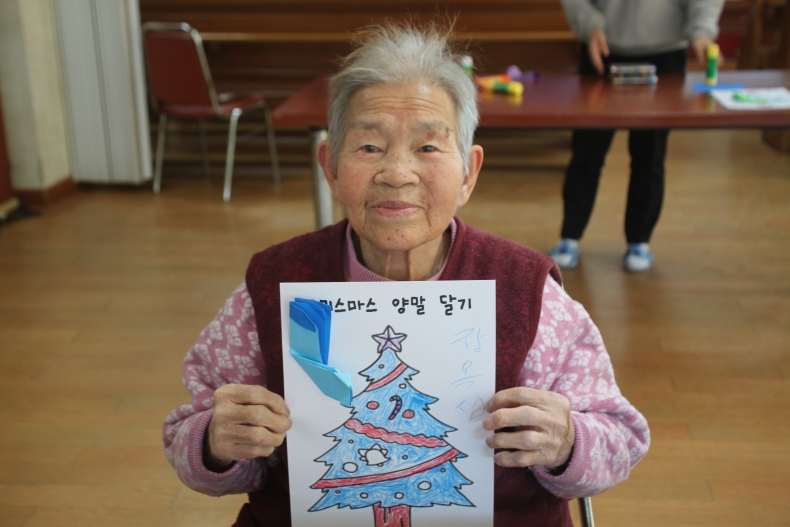 리스마스 양말 달기